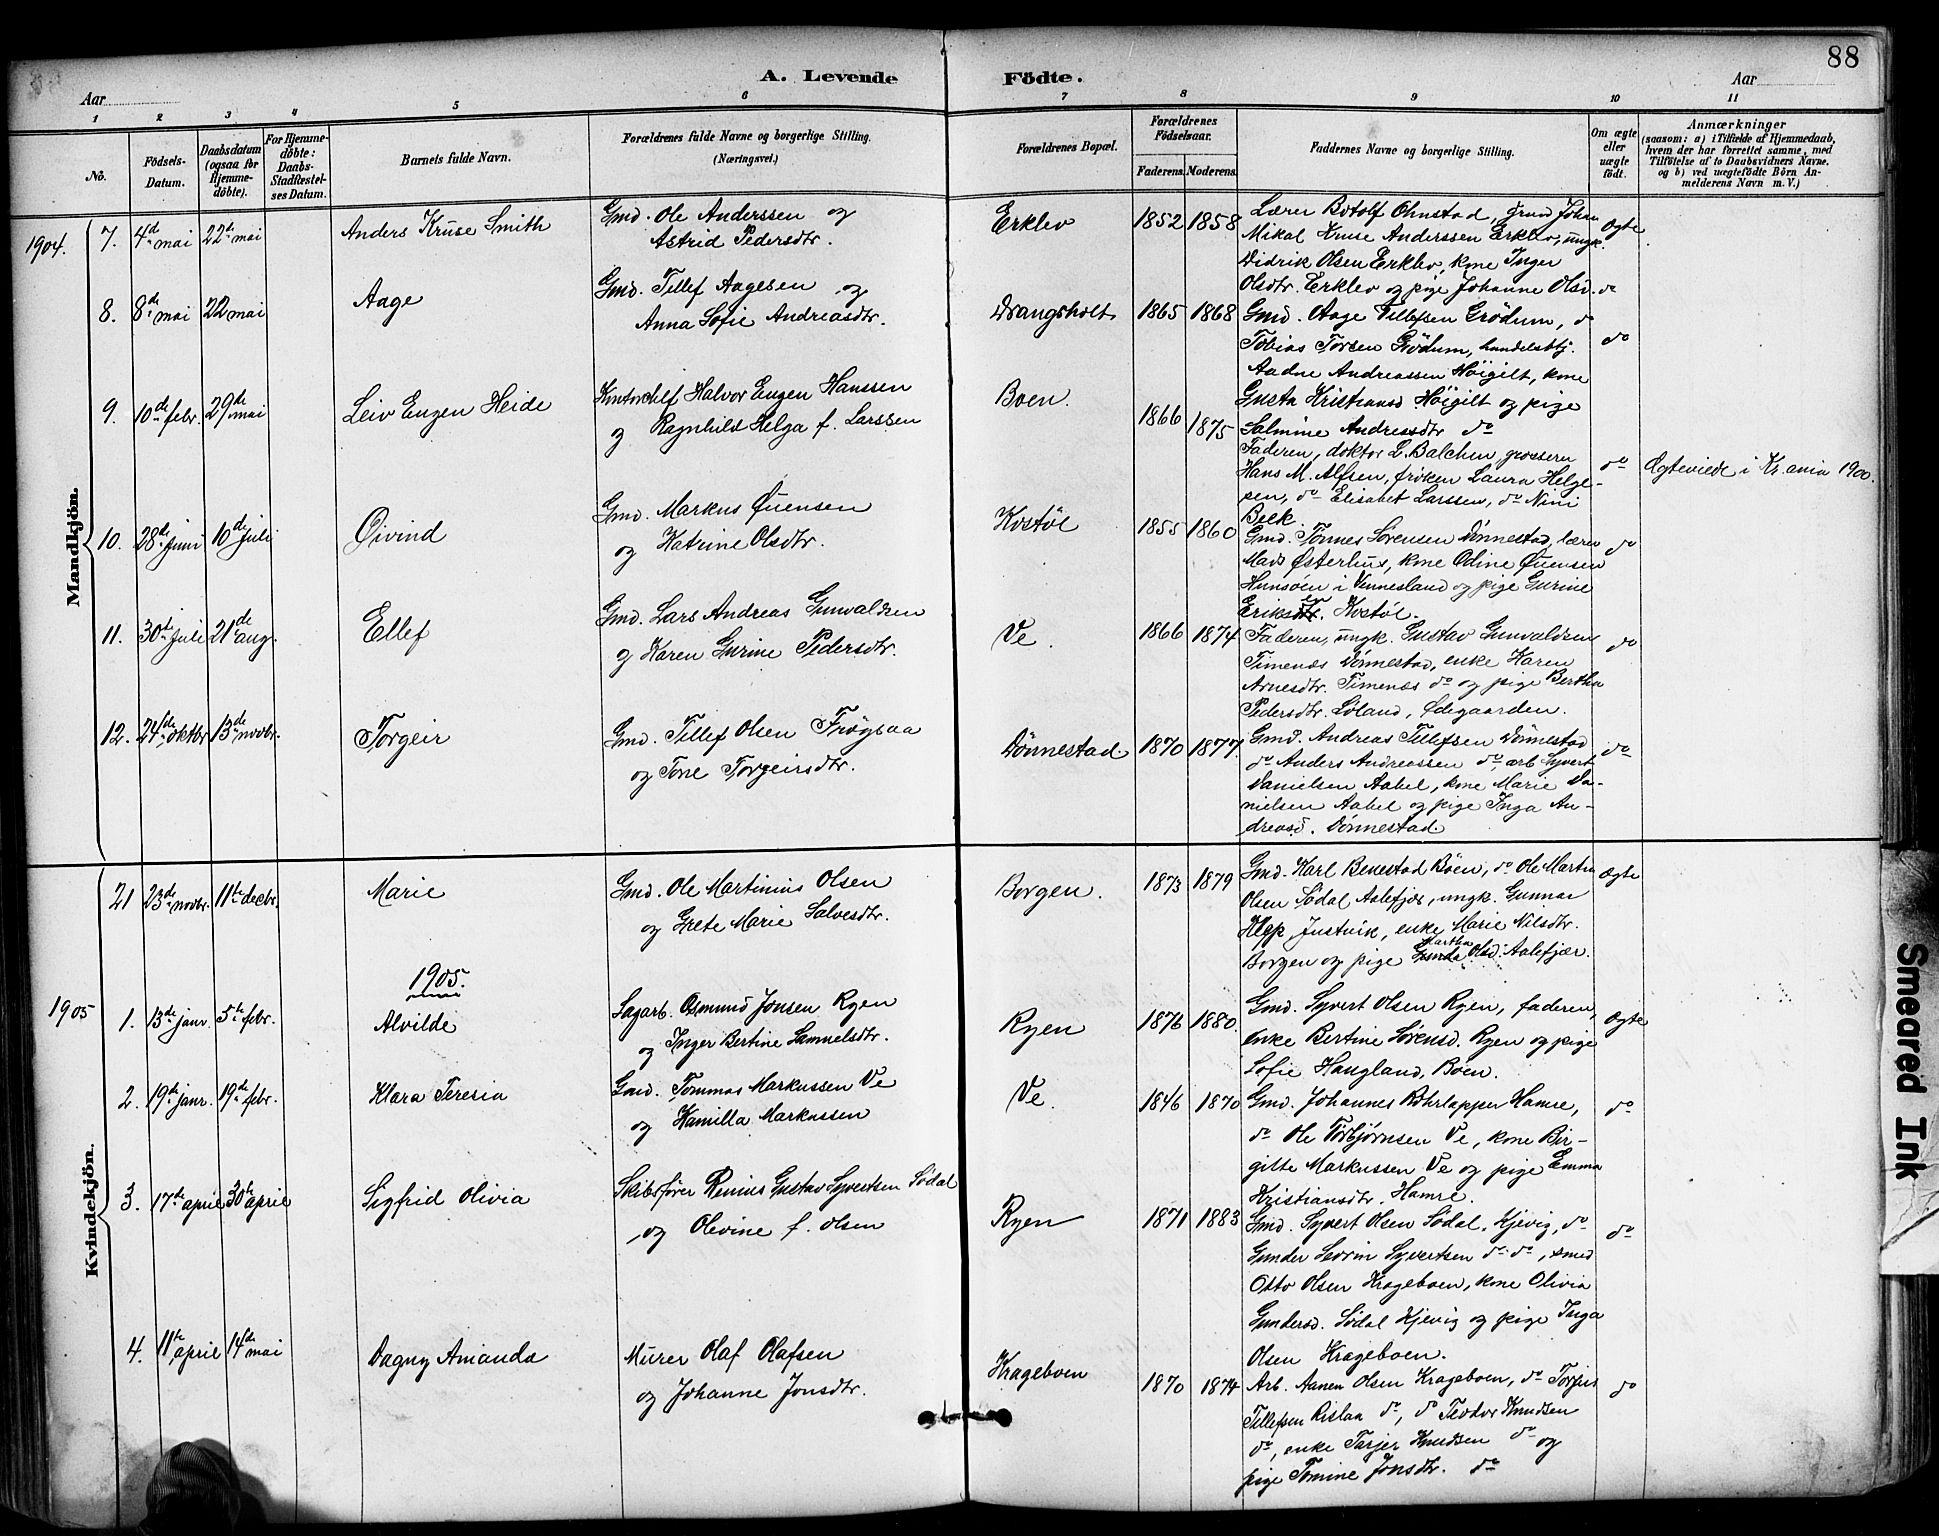 88
A. Levende Födte.
Aar
Aar
1 2 3 4 5 6 7 8 9 10 11
No.
Födsels-Datum.
Daabsdatum (ogsaa for Hjemme-döbte).
For Hjemme-döbte: Daabs-Stadfæstel-ses Datum.
Barnets fulde Navn.
Forældrenes fulde Navne og borgerlige Stilling.
(Næringsvei.)
Forældrenes Bopæl.
Forældrenes Födselsaar.
Faderens. Moderens.
Faddernes Navne og borgerlige Stilling.
Om ægte eller uægte födt.
Anmærkninger
(saasom: a) i Tilfælde af Hjemmedaab,
hvem der har forrettet samme, med
Tilföielse af to Daabsvidners Navne.
og b) ved uægtefödte Börn An-
melderens Navn m. V.)
Mandkjön.
1904. 7. 4de mai 22de mai Anders Kruse Smith
Gmd. Ole Anderssen og
Astrid Pedersdtr.
Erklev 1852 1858
Lærer Botolf Ohnstad, Grund Johan
Mikal Kruse Anderssen Erklev, ungk.
Didrik Olsen Erklev, kone Inger
Olsdtr. Erklev og pige Johanne Olsd. do
Ægte
8. 8de mai 22 mai Aage
Gmd. Tellef Aagesen og
Anna Sofie Andreasdtr.
Drangsholt 1865 1868
Gmd. Aage Tellefsen Grödum, do
Tobias Torsen Grödum, handelsbtj.
Aadne Andreassen Höigilt, kone
Gusta Kristiansd. Höigilt og pige
Salmine Andreasdtr do
do
9. 10de febr. 29de mai Leiv Eugen Heide
Kontorchef Halvor Eugen Hanssen
og Ragnhild Helga f. Larssen
Boen. 1866 1875
Faderen, doktor L. Balchen, grosserer
Hans M. Alfsen, fröken Laura Helge-
sen, do Elisabet Larssen, do Nini
Beck
do Ægteviede i Kr.ania 1900.
10. 28de juni 10de juli Øivind
Gmd. Markus Øuensen
og Katrine Olsdtr.
Kostöl 1855 1860
Gmd. Tönnes Sörensen Dönnestad, lærer
Mads Østerhus, kone Odine Øuensen
Hunsöen i Vennesland og pige Gurine
Eriksen Kostöl.
do
11. 30te juli 21de aug. Ellef
Gmd. Lars Andreas Gunvaldsen
og Karen Gurine Pedersdtr.
Ve. 1866 1874
Faderen, ungk. Gustav Gunvaldsen
Timenæs Dönnestad, enke Karen
Arnesdtr. Timenæs do og pige Bertha
Pedersdtr. Löland, Ødegaarden.
do
12. 24de oktbr 13de novbr. Torgeir
Gmd. Tellef Olsen Frögsaa
og Tone Torgeirsdtr.
Dönnestad. 1870 1877.
Gmd. Andreas Tellefsen Dönnestad
do Anders Andreassen do, arb Syvert
Danielsen Aabel, kone Marie Da-
nielsen Aabel og pige Inga An-
dreasd. Dönnestad.
do
Kvindekjön.
21 23de novbr. 11te decbr. Marie
Gmd. Ole Martinius Olsen
og Grete Marie Salvesdtr.
Borgen. 1873 1879
Gmd. Karl Benestad Böen, do Ole Martin
Olsen Södal Aalefjær, ungk. Gunnar
Klep, Justvik, enke Marie Nilsdtr.
Borgen og pige Martha Olsd. Aalefjær.
Ægte
1905.
1905 1. 13de janr. 5te febr. Alvilde
Sagarb. Osmund Jonsen Ryen
og Inger Bertine Samuelsdtr.
Ryen 1876 1880.
Gmd. Syvert Olsen Ryen, faderen,
enke Bertine Sörensd. Ryen og pige
Sofie Haugland, Böen.
Ægte
2. 19de janr. 19de febr. Klara Teresia
Gmd. Tommas Markussen Ve
og Kamilla Markussen
Ve. 1846 1870
Gmd. Johannes Rohrlapper Hamre,
do Ole Torbjörnsen Ve, kone Bir-
gitte Markussen Ve og pige Emma
Kristiansdtr. Hamre.
do
3. 17de april 30te april Sigfrid Olivia
Skibsförer Renius Gustav Syvertsen Södal
og Olevine f. Olsen
Ryen 1871 1883
Gmd. Syvert Olsen Södal, Kjevig, do
Gunder Severin Syvertsen do do, smed
Otto Olsen Krageboen, kone Olivia
Gundersd. Södal Kjevig og pige Inga
Olsen Krageboen.
do
4. 11te april 14de mai Dagny Amanda
Murer Olaf Olafsen
og Johanne Jonsdtr.
Krageboen 1870 1874
Arb. Aanen Olsen Krageboen, do Torjus
Tellefsen Rislaa do, do Teodor Knudsen
do, enke Tarjer Knudsen do og
pige Tomine Jonsdtr. do
do
Smeared Ink